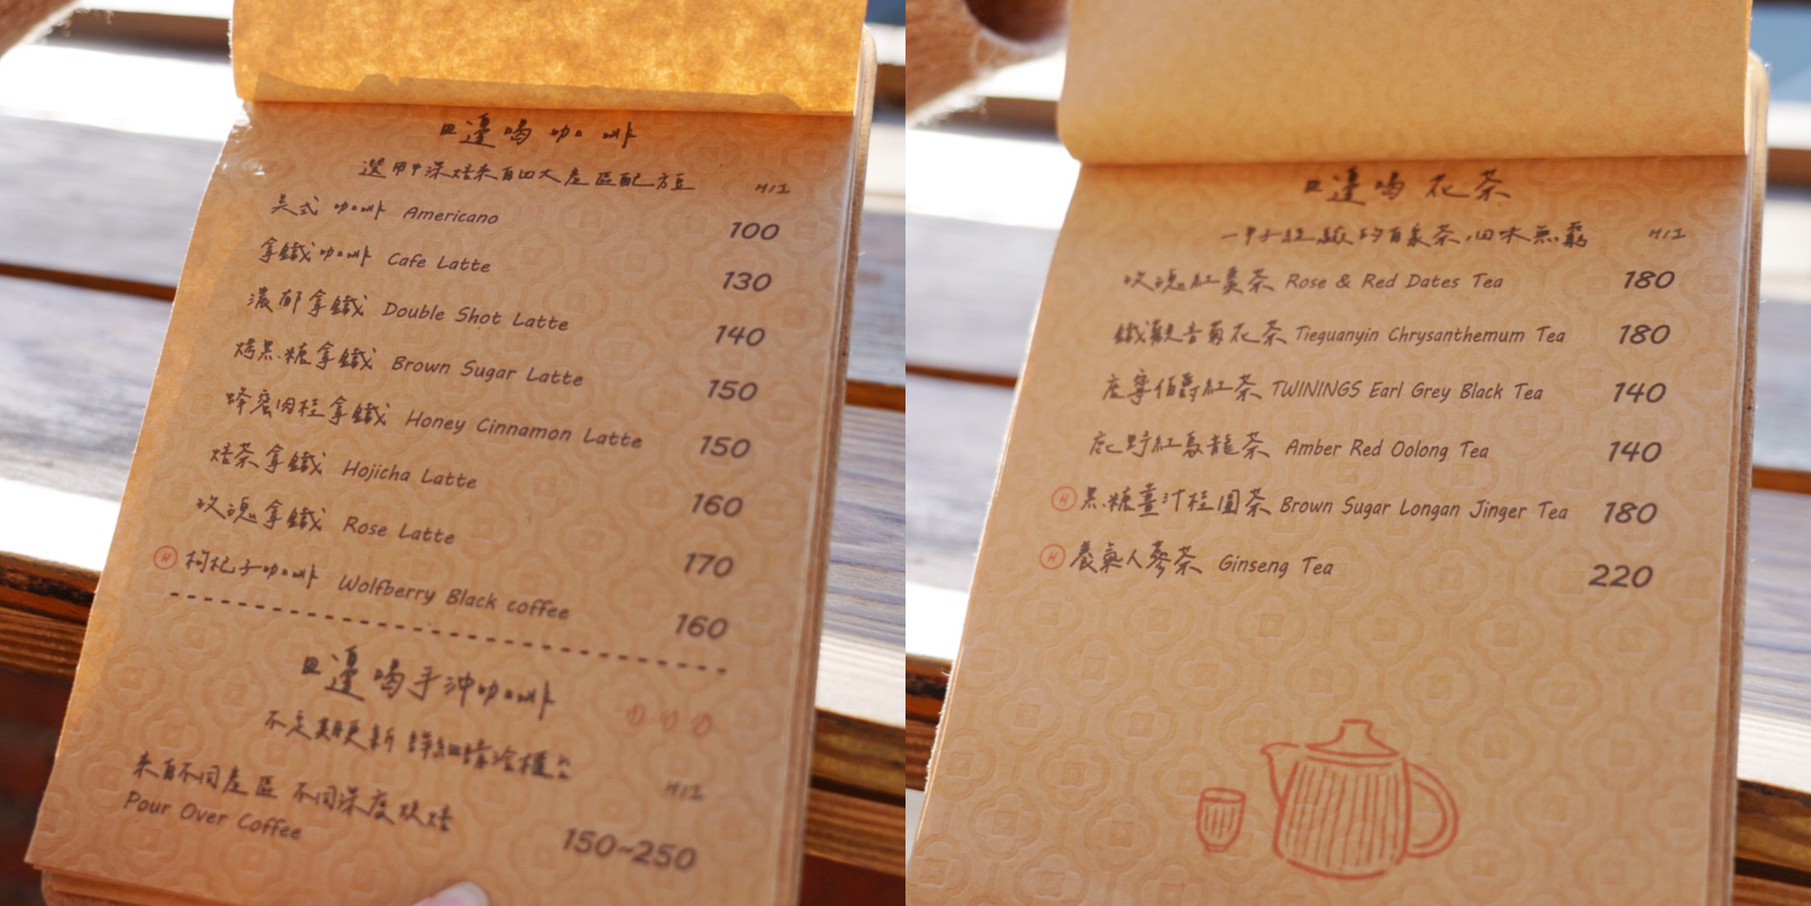 旦邊喝咖啡
選用中深焙來自四大產區配方豆 H/I
美式咖啡 Americano 100
拿鐵咖啡 Cafe Latte 130
濃郁拿鐵 Double Shot Latte 140
烤黑糖拿鐵 Brown Sugar Latte 150
蜂蜜肉桂拿鐵 Honey Cinnamon Latte 150
焙茶拿鐵 Hojicha Latte 160
玫瑰拿鐵 Rose Latte 170
H 枸杞子咖啡 Wolfberry Black coffee 160
旦邊喝手沖咖啡
不定期更新 詳細請洽櫃台
H/I
來自不同產區 不同深度烘焙
Pour Over Coffee 150~250
旦邊喝花茶
一甲子經緻的百家茶,回味無窮 H/I
玫瑰紅棗茶 Rose & Red Dates Tea 180
鐵觀音菊花茶 Tieguanyin Chrysanthemum Tea 180
唐寧伯爵紅茶 TWININGS Earl Grey Black Tea 140
鹿野紅烏龍茶 Amber Red Oolong Tea 140
H 黑糖薑汁桂圓茶 Brown Sugar Longan Jinger Tea 180
H 養氣人蔘茶 Ginseng Tea 220